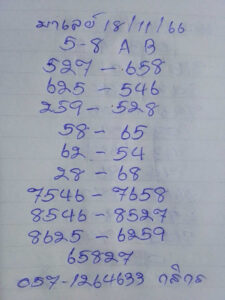 มาเลย์ 18/11/66
5-8 A B
527 - 658
625 - 546
259 - 528
58 - 65
62 - 54
28 - 68
7546 - 7658
8546 - 8527
8625 - 6259
65827
057-1264633 กสิกร